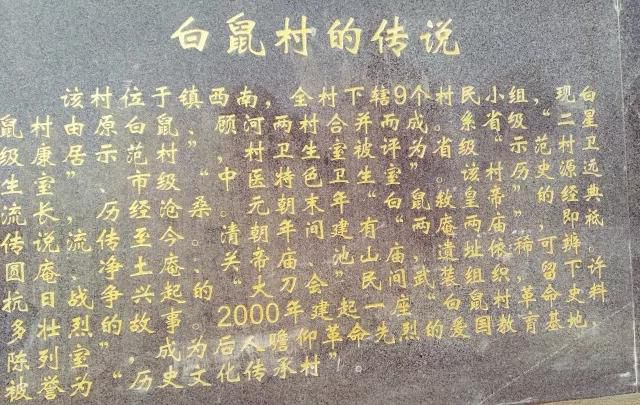 白鼠村的传说
该村位于镇西南，全村下辖9个村民小组，现白
鼠村由原白鼠、顾河两村合并而成。系省级“二星
级康居示范村”，村卫生室被评为省级“示范村卫
生室”、市级“中医特色卫生室”。该村历史源远
流长，历经沧桑。元朝末年有“白鼠救皇帝”的经典
传说流传至今。清朝年间建有“两庵两庙”，即祗
圆庵、净土庵、关帝庙、池山庙，遗址依稀可辨。
抗日战争兴起的“大刀会”民间武装组织，留下许
多壮烈的故事。2000年建起一座“白鼠村革命史料
陈列室”，成为后人瞻仰革命先烈的爱国教育基地，
被誉为“历史文化传承村”。